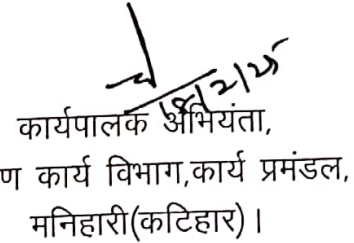 कार्यपालक अभियंता,
ण कार्य विभाग,कार्य प्रमंडल,
मनिहारी(कटिहार)।